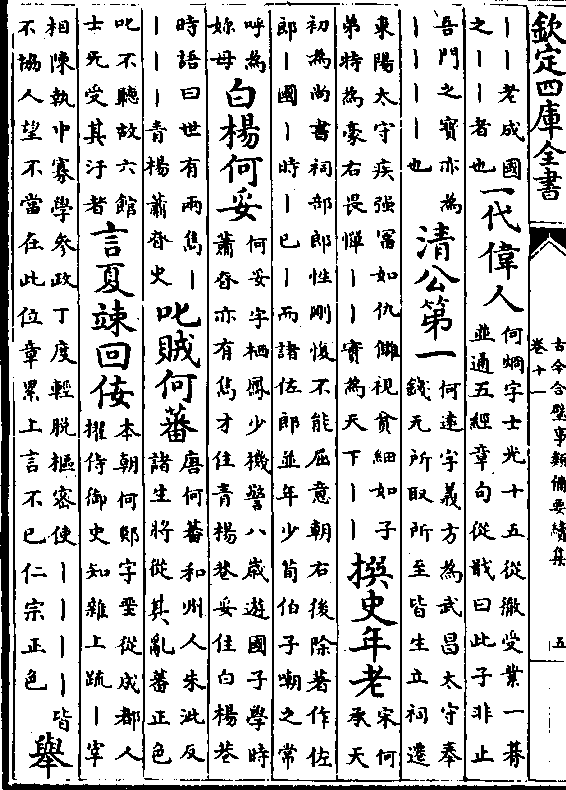 欽定四庫全書
古今合璧事類備要續集
卷十一
五
丨丨老成國
之丨丨者也
一代偉人
何烱字士光十五從徹受業一朞
並通五經章句從戢曰此子非止
吾門之寶亦為
丨丨丨丨也
清公第一
何逺字義方為武昌太守奉
錢无所取所至皆生立祠遷
東陽太守疾强富如仇讎視貧細如子
弟特為豪右畏憚丨丨實為天下丨丨
撰史年老
宋何
承天
初為尚書祠部郎性剛愎不能屈意朝右後除著作佐
郎丨國丨時丨已丨而諸佐郎並年少荀伯子嘲之常
呼為
妳母
白楊何妥
何妥字栖鳳少機警八歲遊國子學時
蕭眘亦有雋才住青楊巷妥住白楊巷
時語曰世有兩雋丨
丨丨丨青楊蕭眘史
叱賊何蕃
唐何蕃和州人朱泚反
諸生將從其亂蕃正色
叱不聽故六館
士无受其汙者
言夏竦回佞
本朝何郯字聖從成都人
擢侍御史知雜上疏丨宰
相陳執中寡學參政丁度輕脱樞密使丨丨丨丨丨皆
不協人望不當在此位章累上言不已仁宗正色
舉